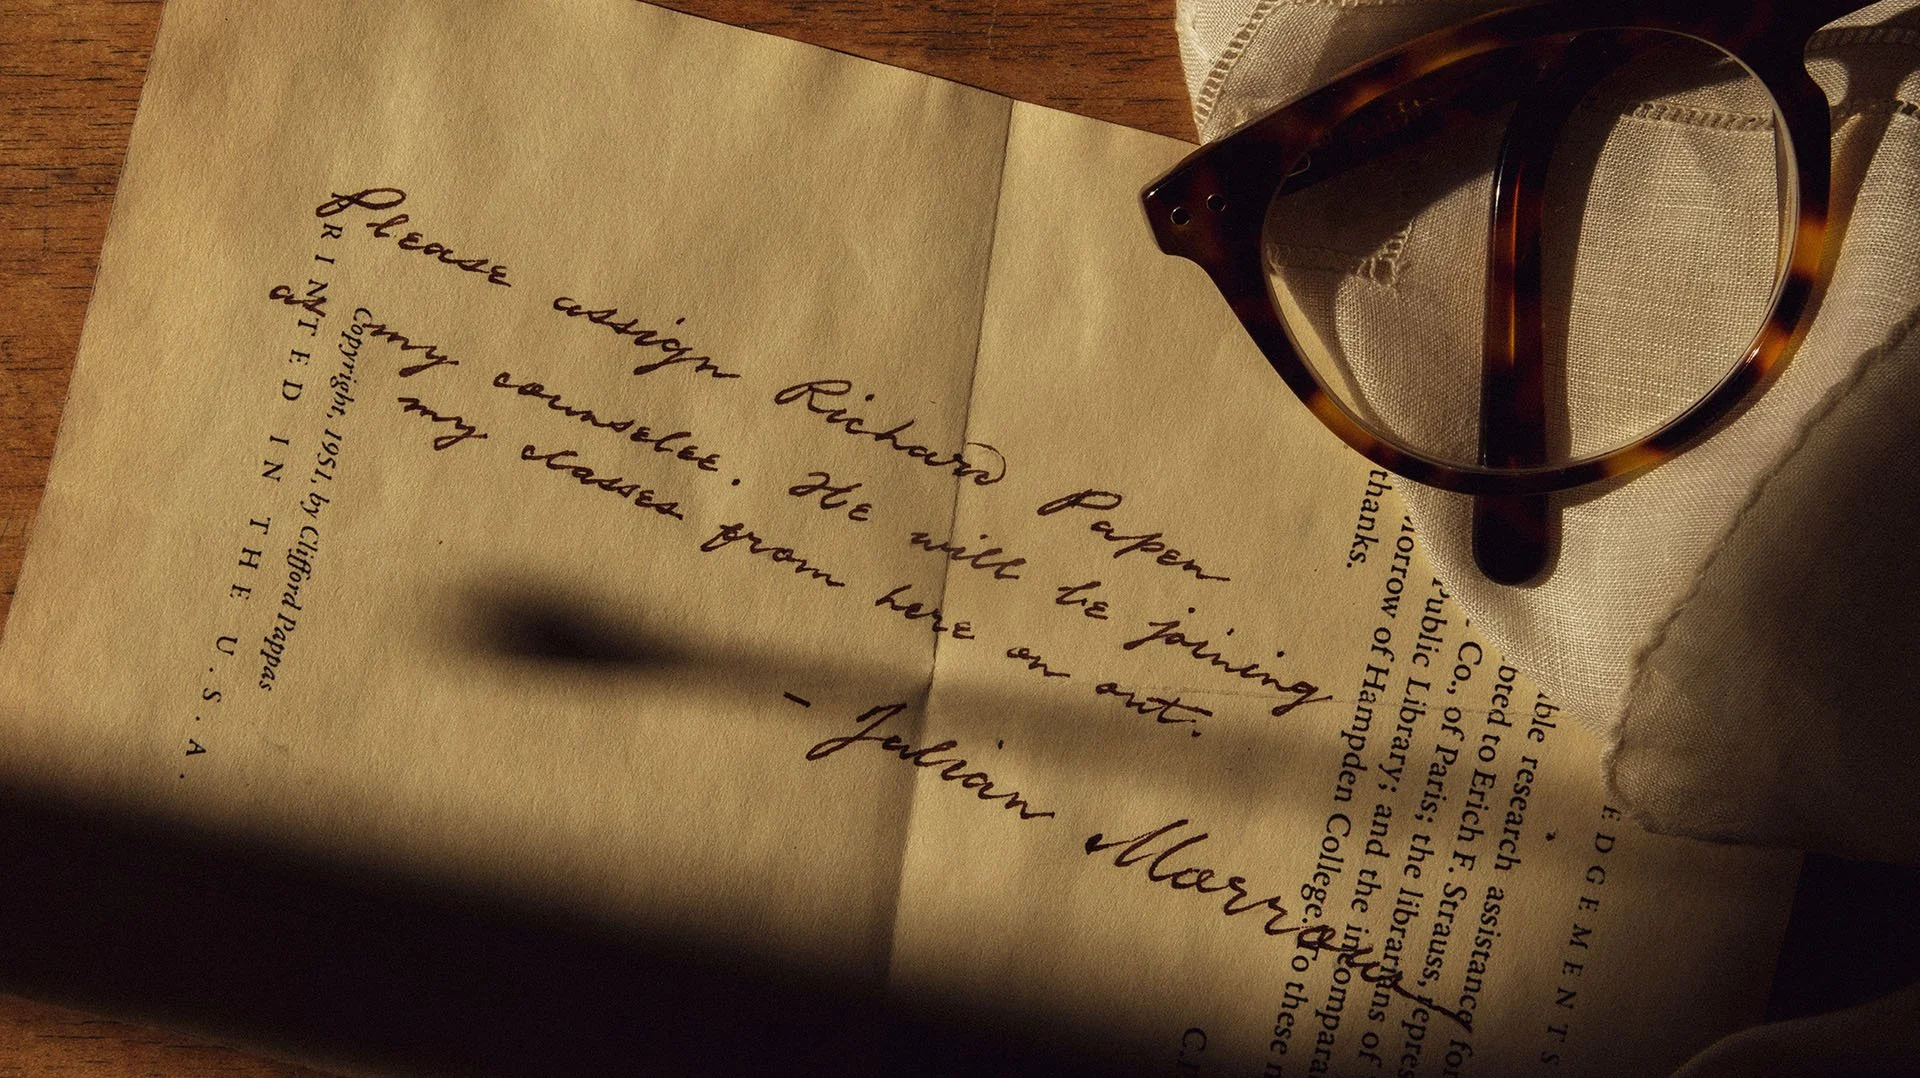 Please assign Richard Papen
as my counselee. He will be joining
my classes from here on out.
- Julian Morrow
Copyright, 1951, by Clifford Pappas
PRINTED IN THE U.S.A.
EDGEMENTS
able research assistance for
bted to Erich F. Strauss, repres
Co., of Paris; the librarians of
Public Library; and the incompara
Morrow of Hampden College. To these
thanks.